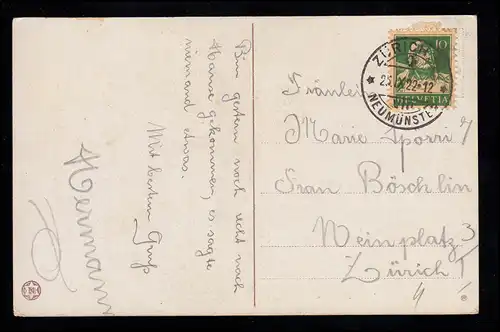 Bin gestern noch recht nach
Hause gekommen, es sagte
niemand etwas.
Mit bestem Gruß
Hermann
Fräulein
Marie Sporri
Frau Böschlin
Weinplatz 3
Zürich 1
ZÜRICH
NEUMÜNSTER
10
HELVETIA